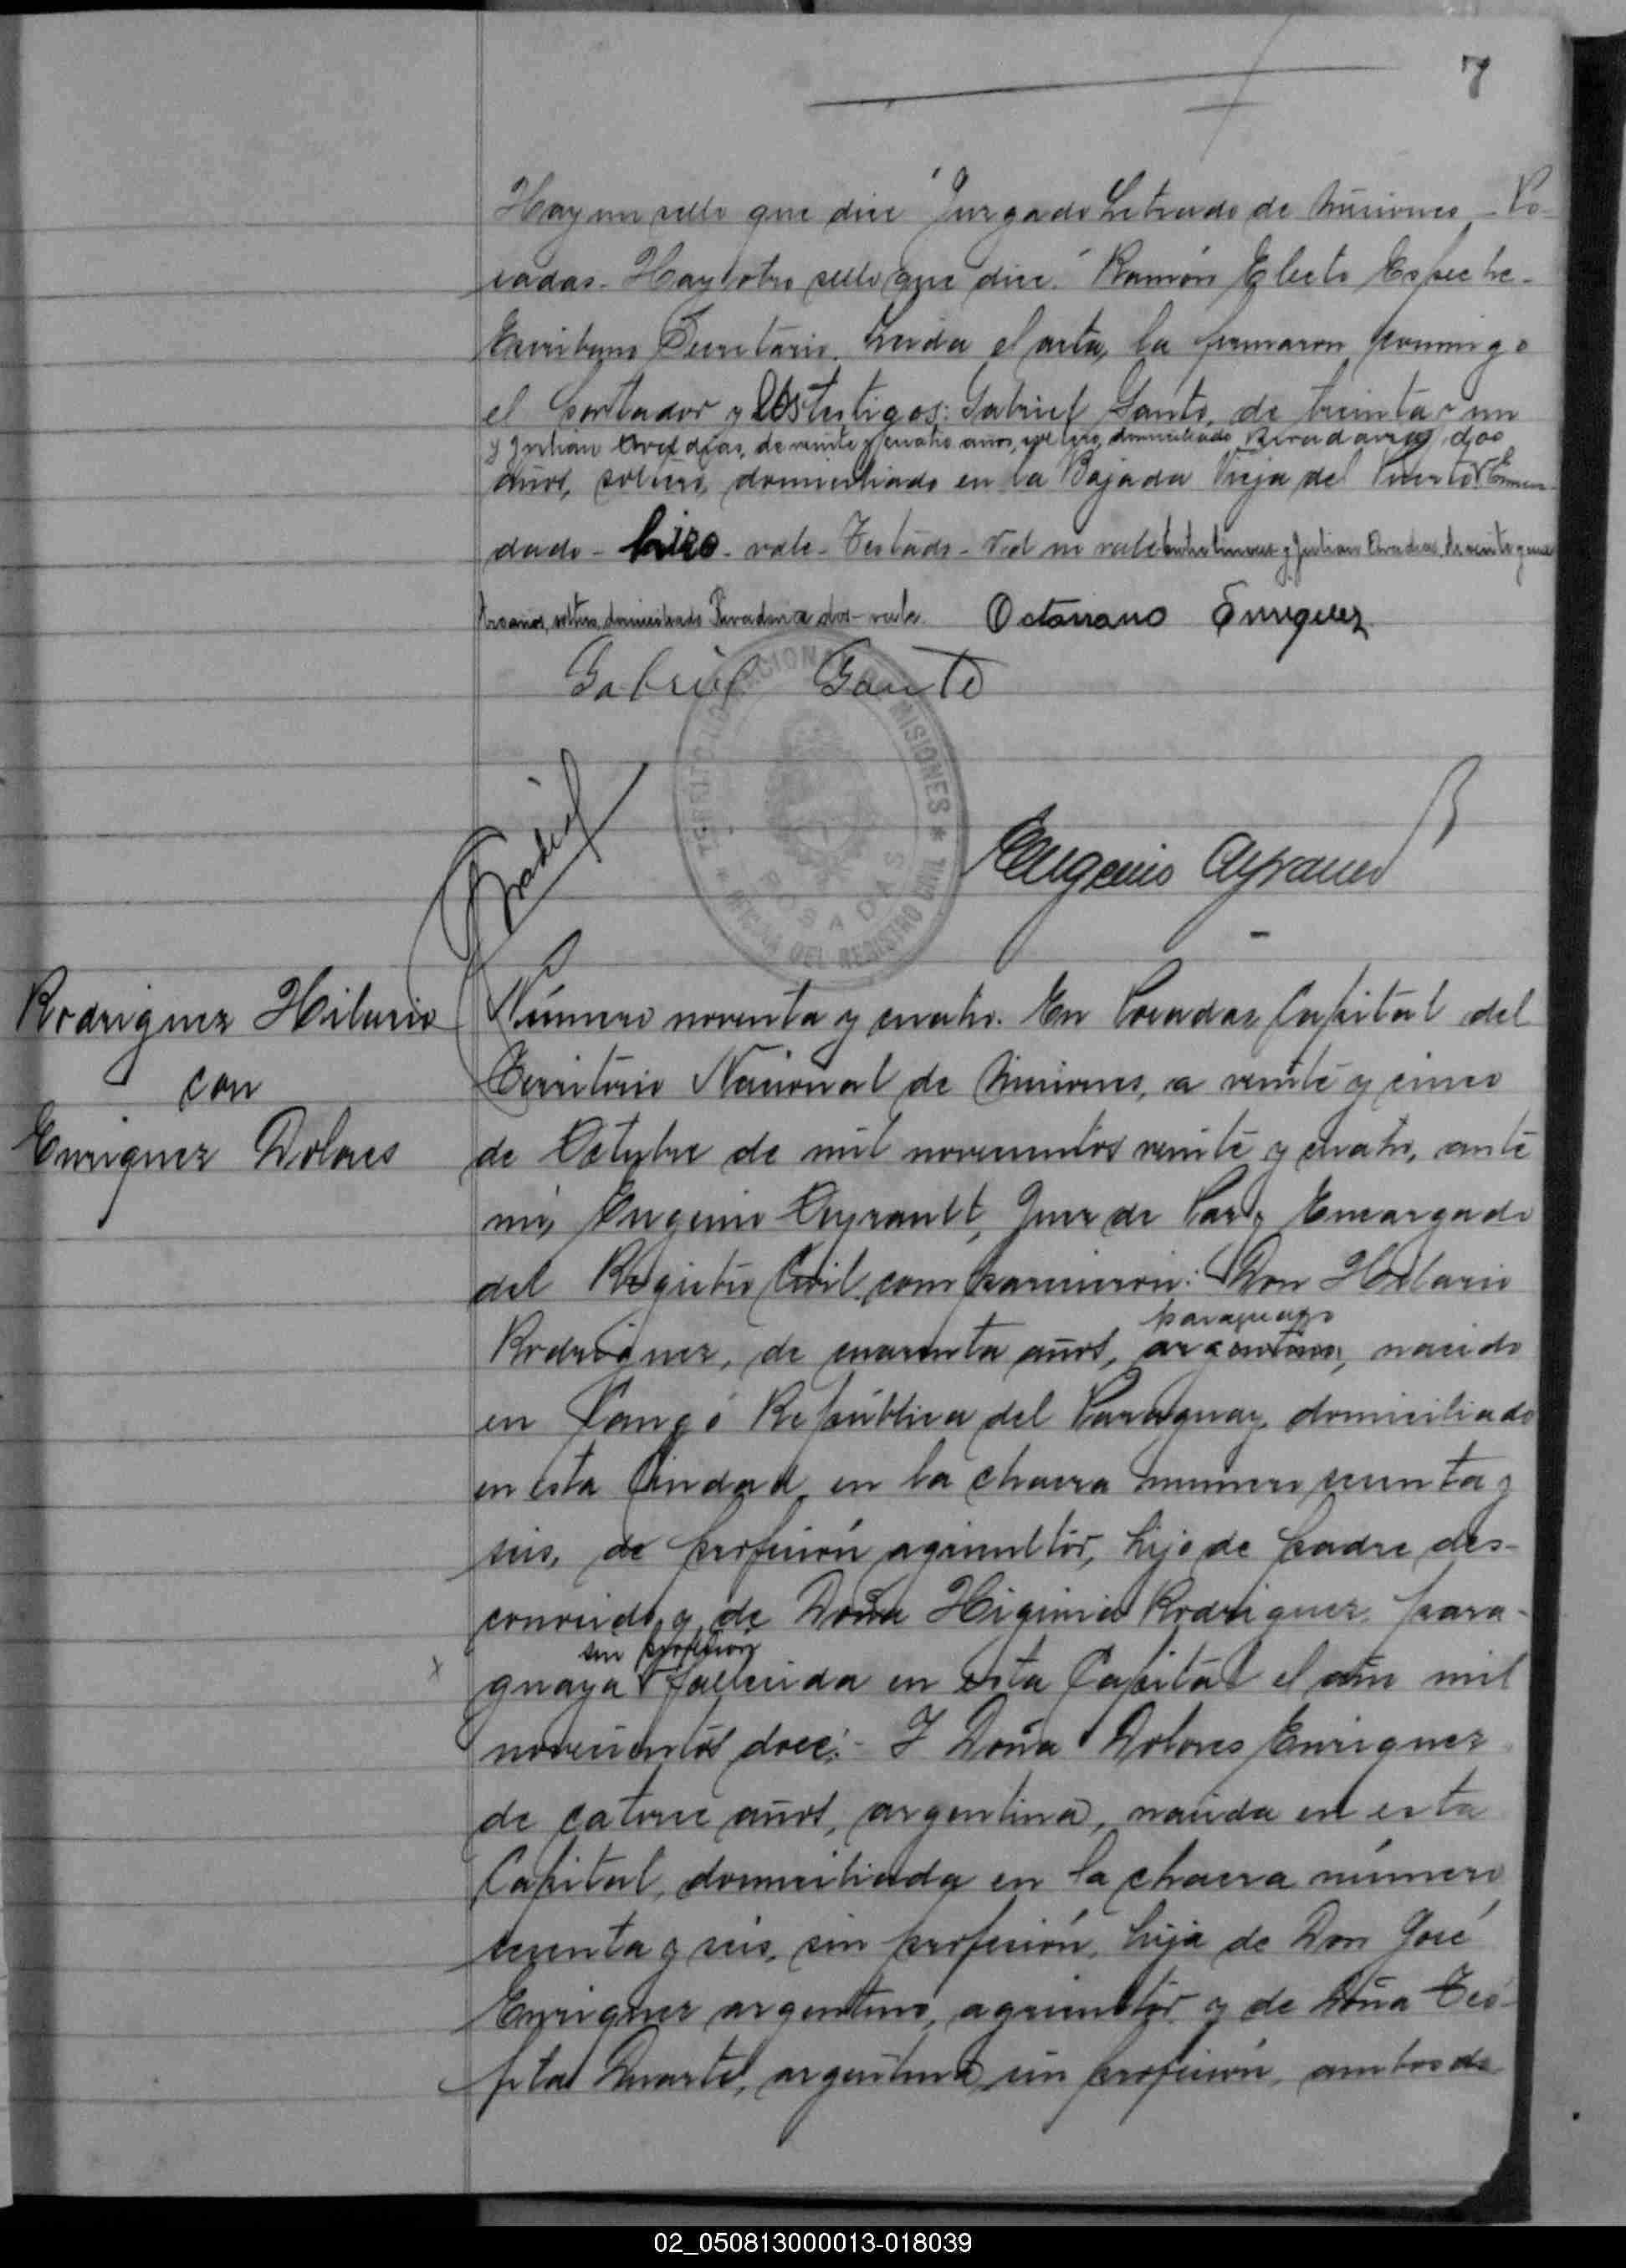 7
Hay un sello que dice "Juzgado Letrado de Misiones - Po-
sadas - Hay otro sello que dice: "Ramón Electo Espeche -
Escribano Secretario. Leida el acta, la firmaron conmigo
el portador y los testigos: Gabriel Gante, de treinta y un
y Julian de veinte y cuatro años, soltero, domiciliado Rivadavia dos
años, soltero, domiciliado en la Bajada Vieja del Puerto. Enmen-
dado - hizo - vale - Testado - no vale Entrelineas y Julian de veinte y cua
tro años, soltero, domiciliado Rivadavia dos - vale. Octaviano Enriquez
Gabriel Gante
TERRITORIO NACIONAL DE MISIONES * OFICINA DEL REGISTRO CIVIL *
POSADAS
Eugenio Ayrault
Rodriguez Hilario
con
Enriquez Dolores
Número noventa y cuatro. En Posadas Capital del
Territorio Nacional de Misiones, a veinte y cinco
de Octubre de mil novecientos veinte y cuatro, ante
mi, Eugenio Ayrault, Juez de Paz y Encargado
del Registro Civil, comparecieron: Don Hilario
paraguayo
Rodriguez, de cuarenta años, argentino, nacido
en República del Paraguay, domiciliado
en esta Ciudad, en la chacra numero sesenta y
seis, de profesión agricultor, hijo de padre des-
conocido y de Doña Higinia Rodriguez, para-
sin profesión
guaya fallecida en esta Capital el año mil
novecientos doce: - Y Doña Dolores Enriquez
de catorce años, argentina, nacida en esta
Capital, domiciliada en la chacra número
sesenta y seis, sin profesión, hija de Don José
Enriquez argentino, agricultor y de Doña Teó-
fila Duarte, argentina, sin profesión, ambos do
02_050813000013-018039